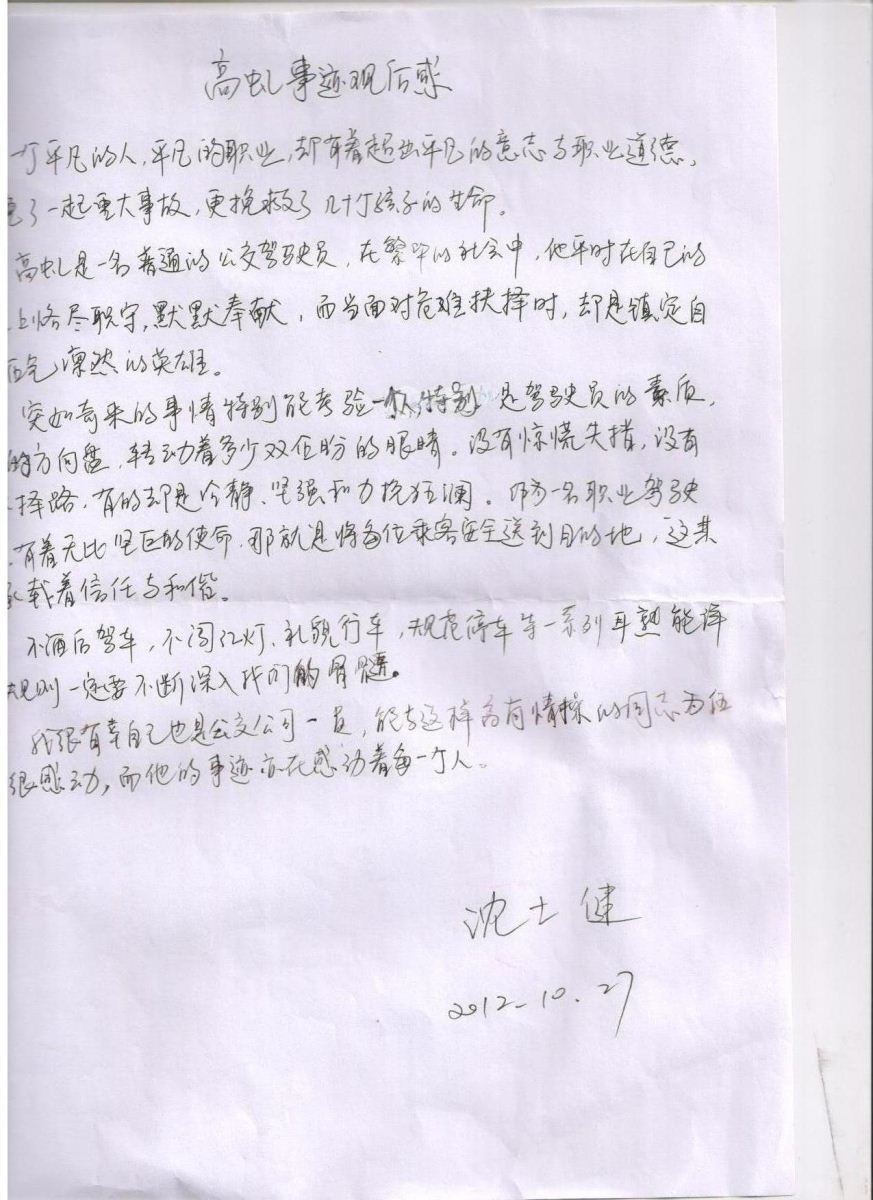 高虬事迹观后感
一个平凡的人,平凡的职业,却有着超出平凡的意志与职业道德,
了一起重大事故,更挽救了几十个孩子的生命。
高虬是一名普通的公交驾驶员,在繁华的社会中,他平时在自己的
上恪尽职守,默默奉献,而当面对危难抉择时,却是镇定自
正气凛然的英雄。
突如奇来的事情特别能考验一个人特别是驾驶员的素质,
的方向盘,转动着多少双企盼的眼睛。没有惊慌失措,没有
择路,有的却是冷静、坚强和力挽狂澜。作为一名职业驾驶
有着无比坚巨的使命,那就是将每位乘客安全送到目的地,这其
承载着信任与和偕。
不酒后驾车,不闯红灯、礼貌行车,规范停车等一系列耳熟能详
规则一定要不断深入我们的骨髓。
我很有幸自己也是公交公司一员,能与这样有情操的同志为伍
很感动,而他的事迹亦在感动着每一个人。
沈士健
2012-10.27